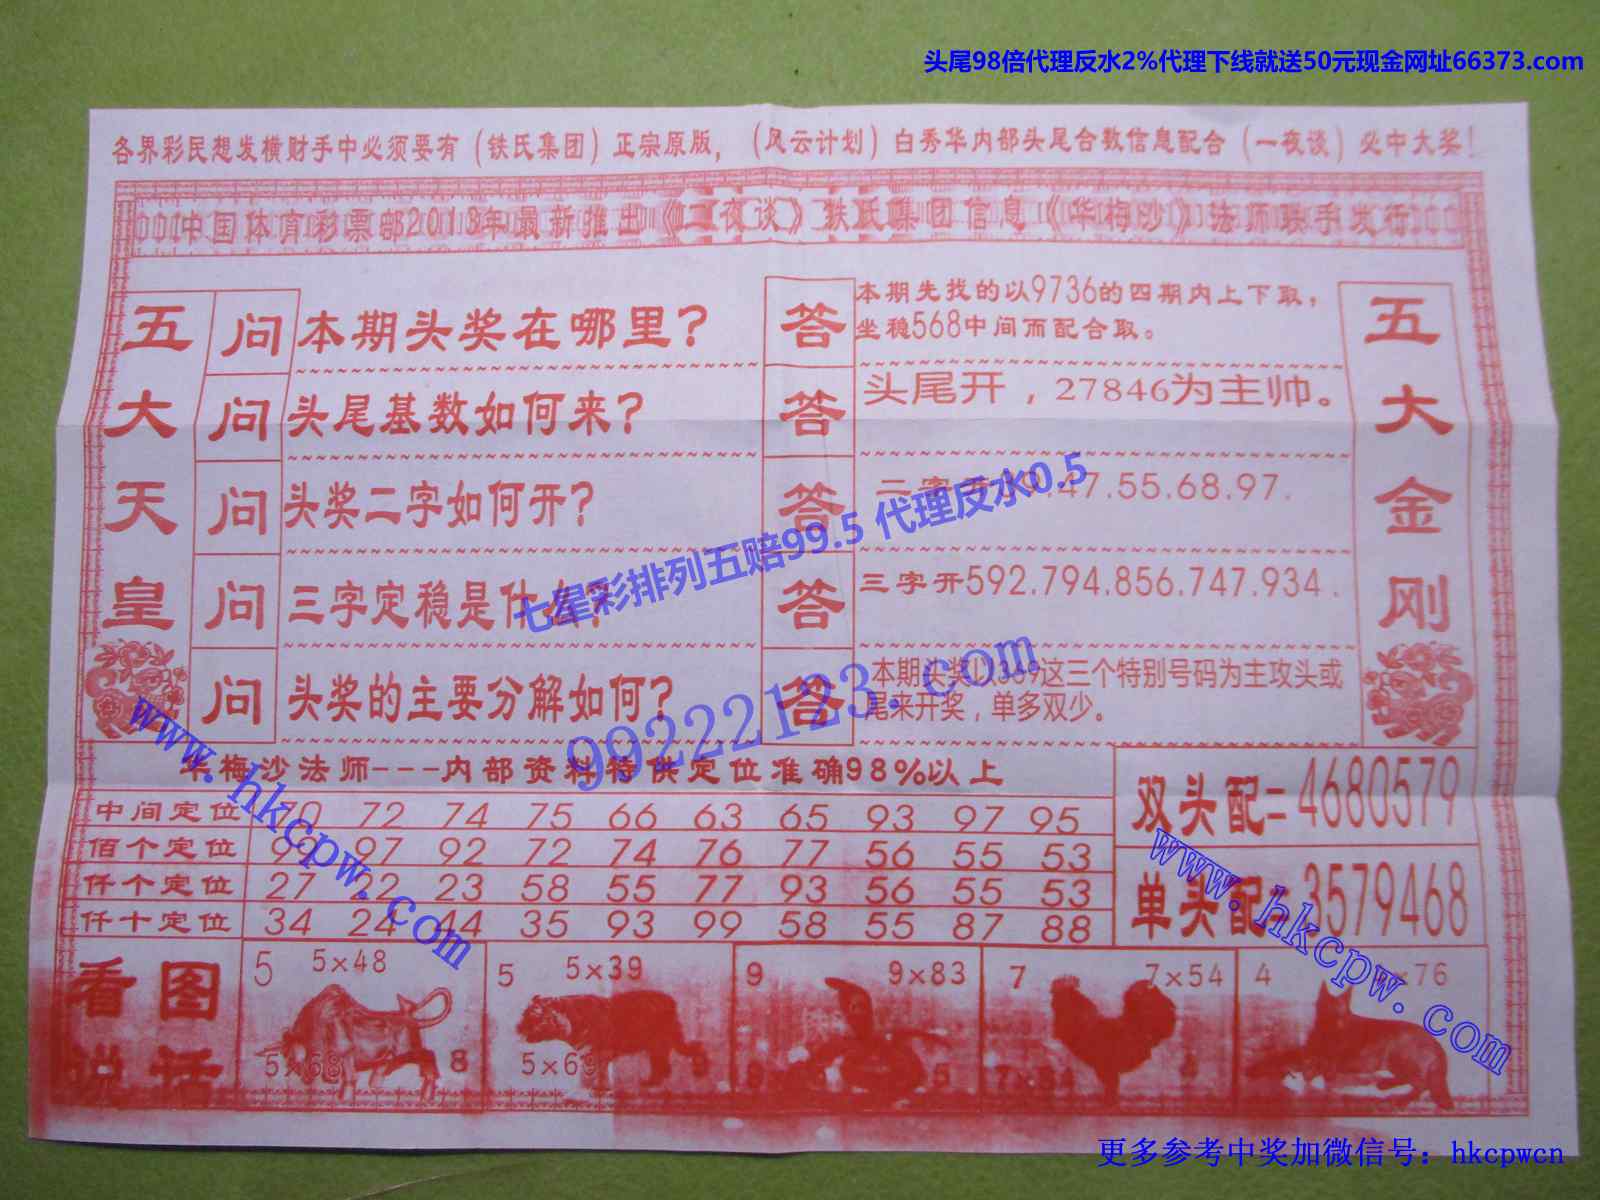 头尾98倍代理反水2%代理下线就送50元现金网址66373.com
各界彩民想发横财手中必须要有（铁氏集团）正宗原版，（风云计划）白秀华内部头尾合数信息配合（一夜谈）必中大奖！
中国体育彩票邮2013年最新推出《二夜谈》铁氏集团信息《华梅沙》法师联手发行
五大天皇
问 本期头奖在哪里？
答 本期先找的以9736的四期内上下取，
坐稳568中间而配合取。
问 头尾基数如何来？
答 头尾开，27846为主帅。
问 头奖二字如何开？
答 二字开39.47.55.68.97.
问 三字定稳是什么？
答 三字开592.794.856.747.934.
问 头奖的主要分解如何？
答 本期头奖以369这三个特别号码为主攻头或
尾来开奖，单多双少。
五大金刚
七星彩排列五赔99.5 代理反水0.5
99222123.com
www.hkcpw.com
华梅沙法师---内部资料特供定位准确98%以上
中间定位 70 72 74 75 66 63 65 93 97 95
佰个定位 99 97 92 72 74 76 77 56 55 53
仟个定位 27 22 23 58 55 77 93 56 55 53
仟十定位 34 24 44 35 93 99 58 55 87 88
双头配=4680579
单头配=3579468
www.hkcpw.com
看图说话
5 5×48
5×68 8
5 5×39
5×69
9 9×83
5
7 7×54
4 ×76
更多参考中奖加微信号：hkcpwcn